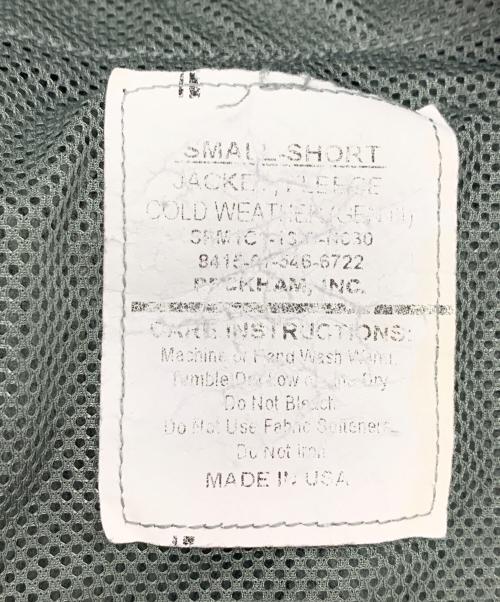 SMALL-SHORT
JACKET, FLEECE
COLD WEATHER (GEN III)
8415-01-546-6722
PECKHAM, INC.
CARE INSTRUCTIONS:
Machine or Hand Wash Warm.
Tumble Dry Low or Line Dry
Do Not Bleach
Do Not Use Fabric Softeners.
Do Not Iron
MADE IN USA